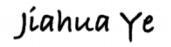 Jiahua Ye